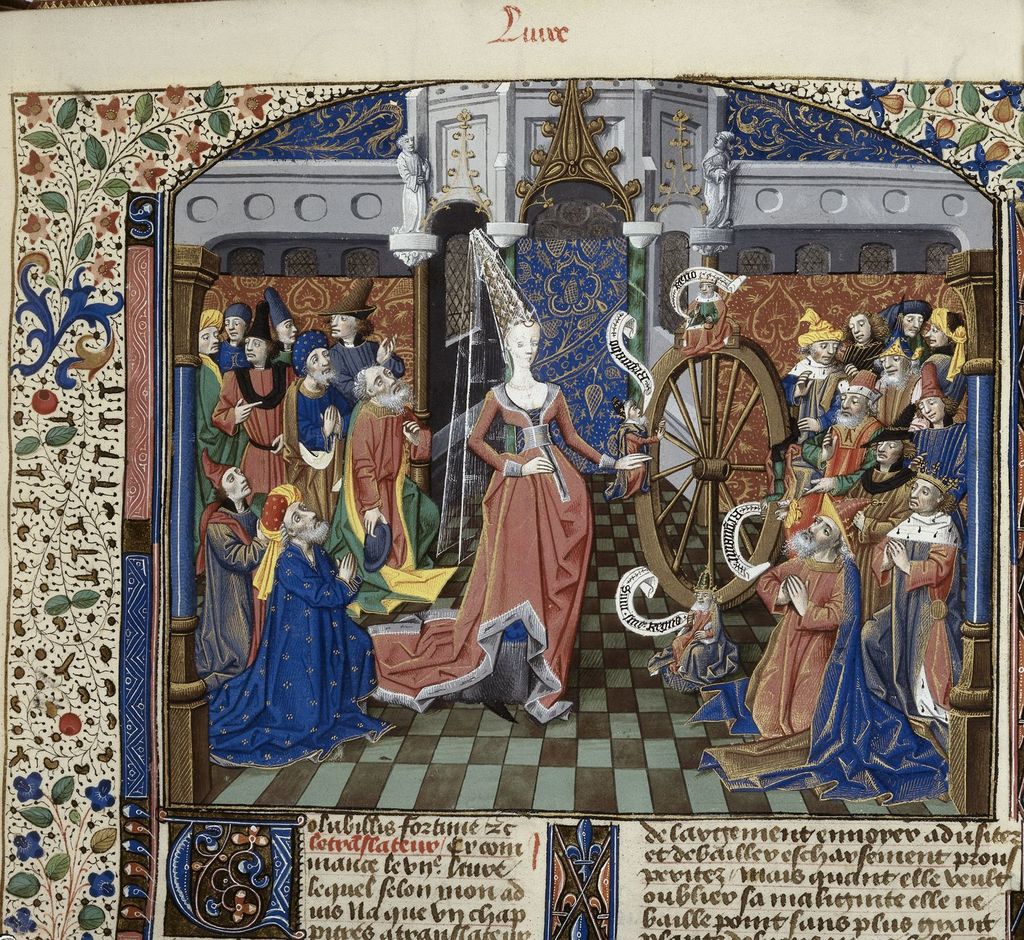 Liure
Regno
Regnabo
Regnavi
Sum sine regno
Volubilis fortune zc
le traslateur Cy com
mance le liure
lequel selon mon ad
uis na que vn chap
de largement enuoyer adusitez
et de bailler escharsement prous
peritez / Mais quant elle veult
oublier sa malignite elle ne
baille point sans plus grant